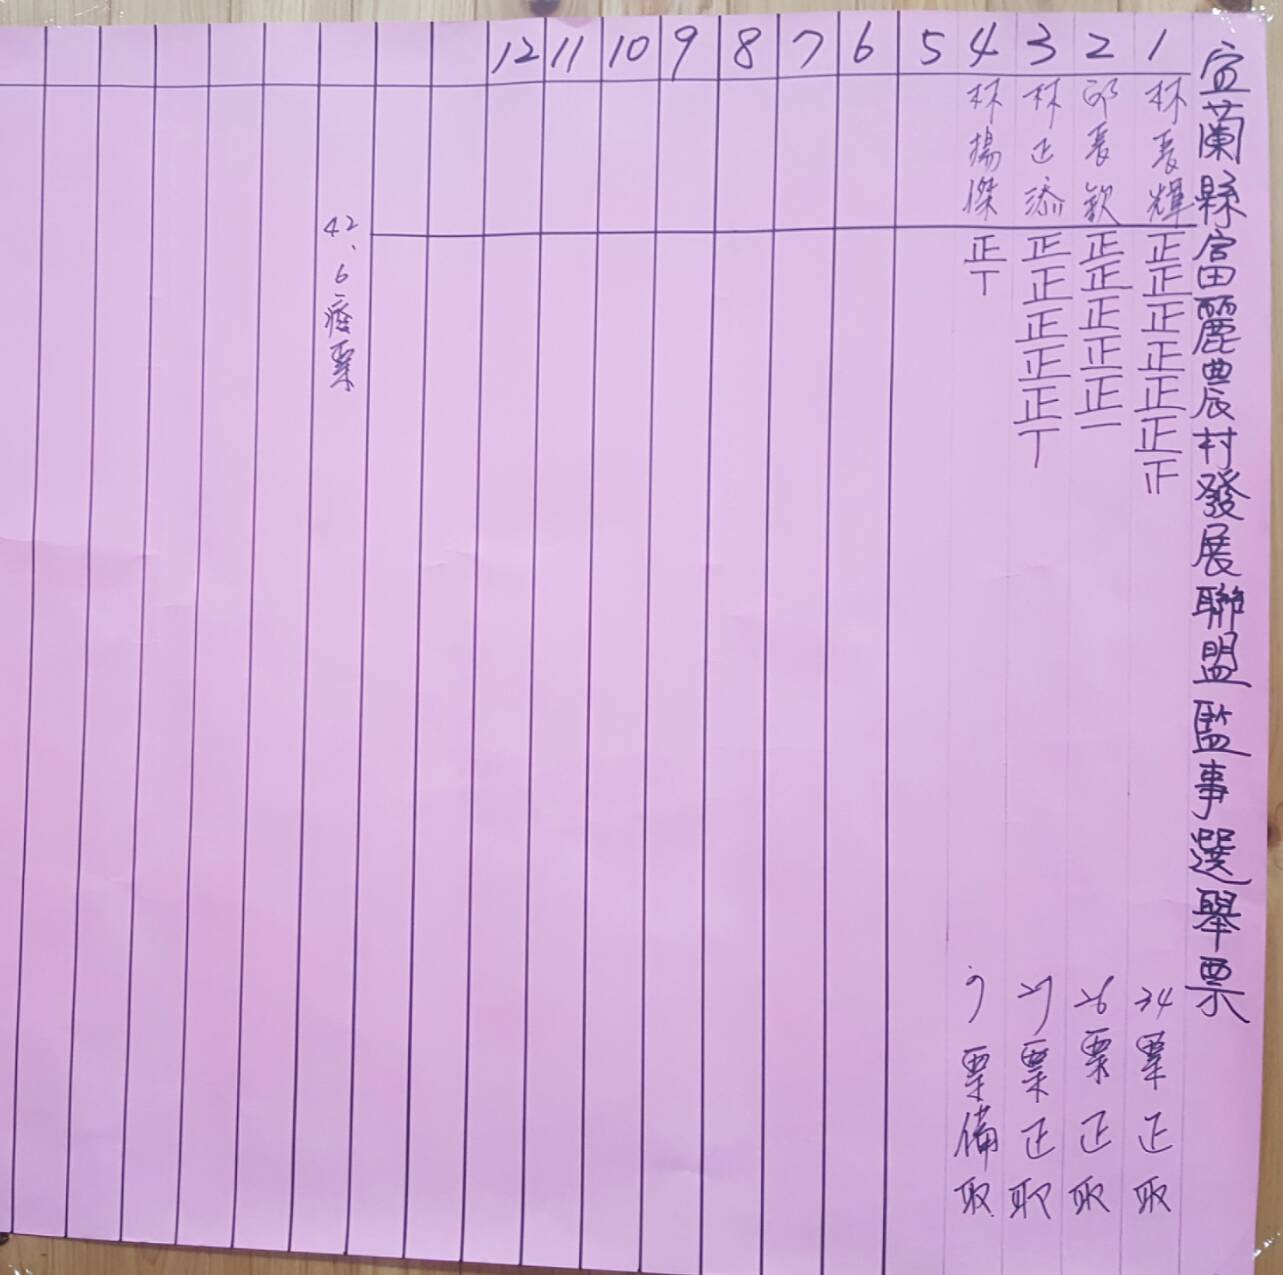 宜蘭縣富麗農村發展聯盟監事選舉票
1
林長輝
正正正正正正正
34票正取
2
邱長欽
正正正正正一
26票正取
3
林正添
正正正正正丅
27票正取
4
林揚傑
正丅
7票備取
5
6
7
8
9
10
11
12
42、6廢票